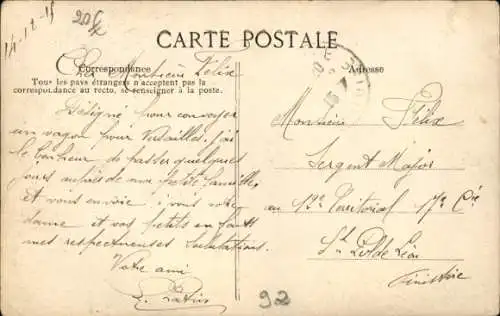 14-12-15
CARTE POSTALE
Correspondance
Adresse
Tous les pays étrangers n'acceptent pas la
correspondance au recto, se renseigner à la poste.
Cher Monsieur Félix
Désigné pour convoyer
un wagon pour Versailles, j'ai
le bonheur de passer quelques
jours auprès de ma petite famille,
et vous envoie à vous votre
dame et vos petits enfants
mes respectueuses salutations.
Votre ami
Monsieur Félix
Sergent Major
au 12e Territorial 17e Cie
St Pol de Léon
Finistère
92